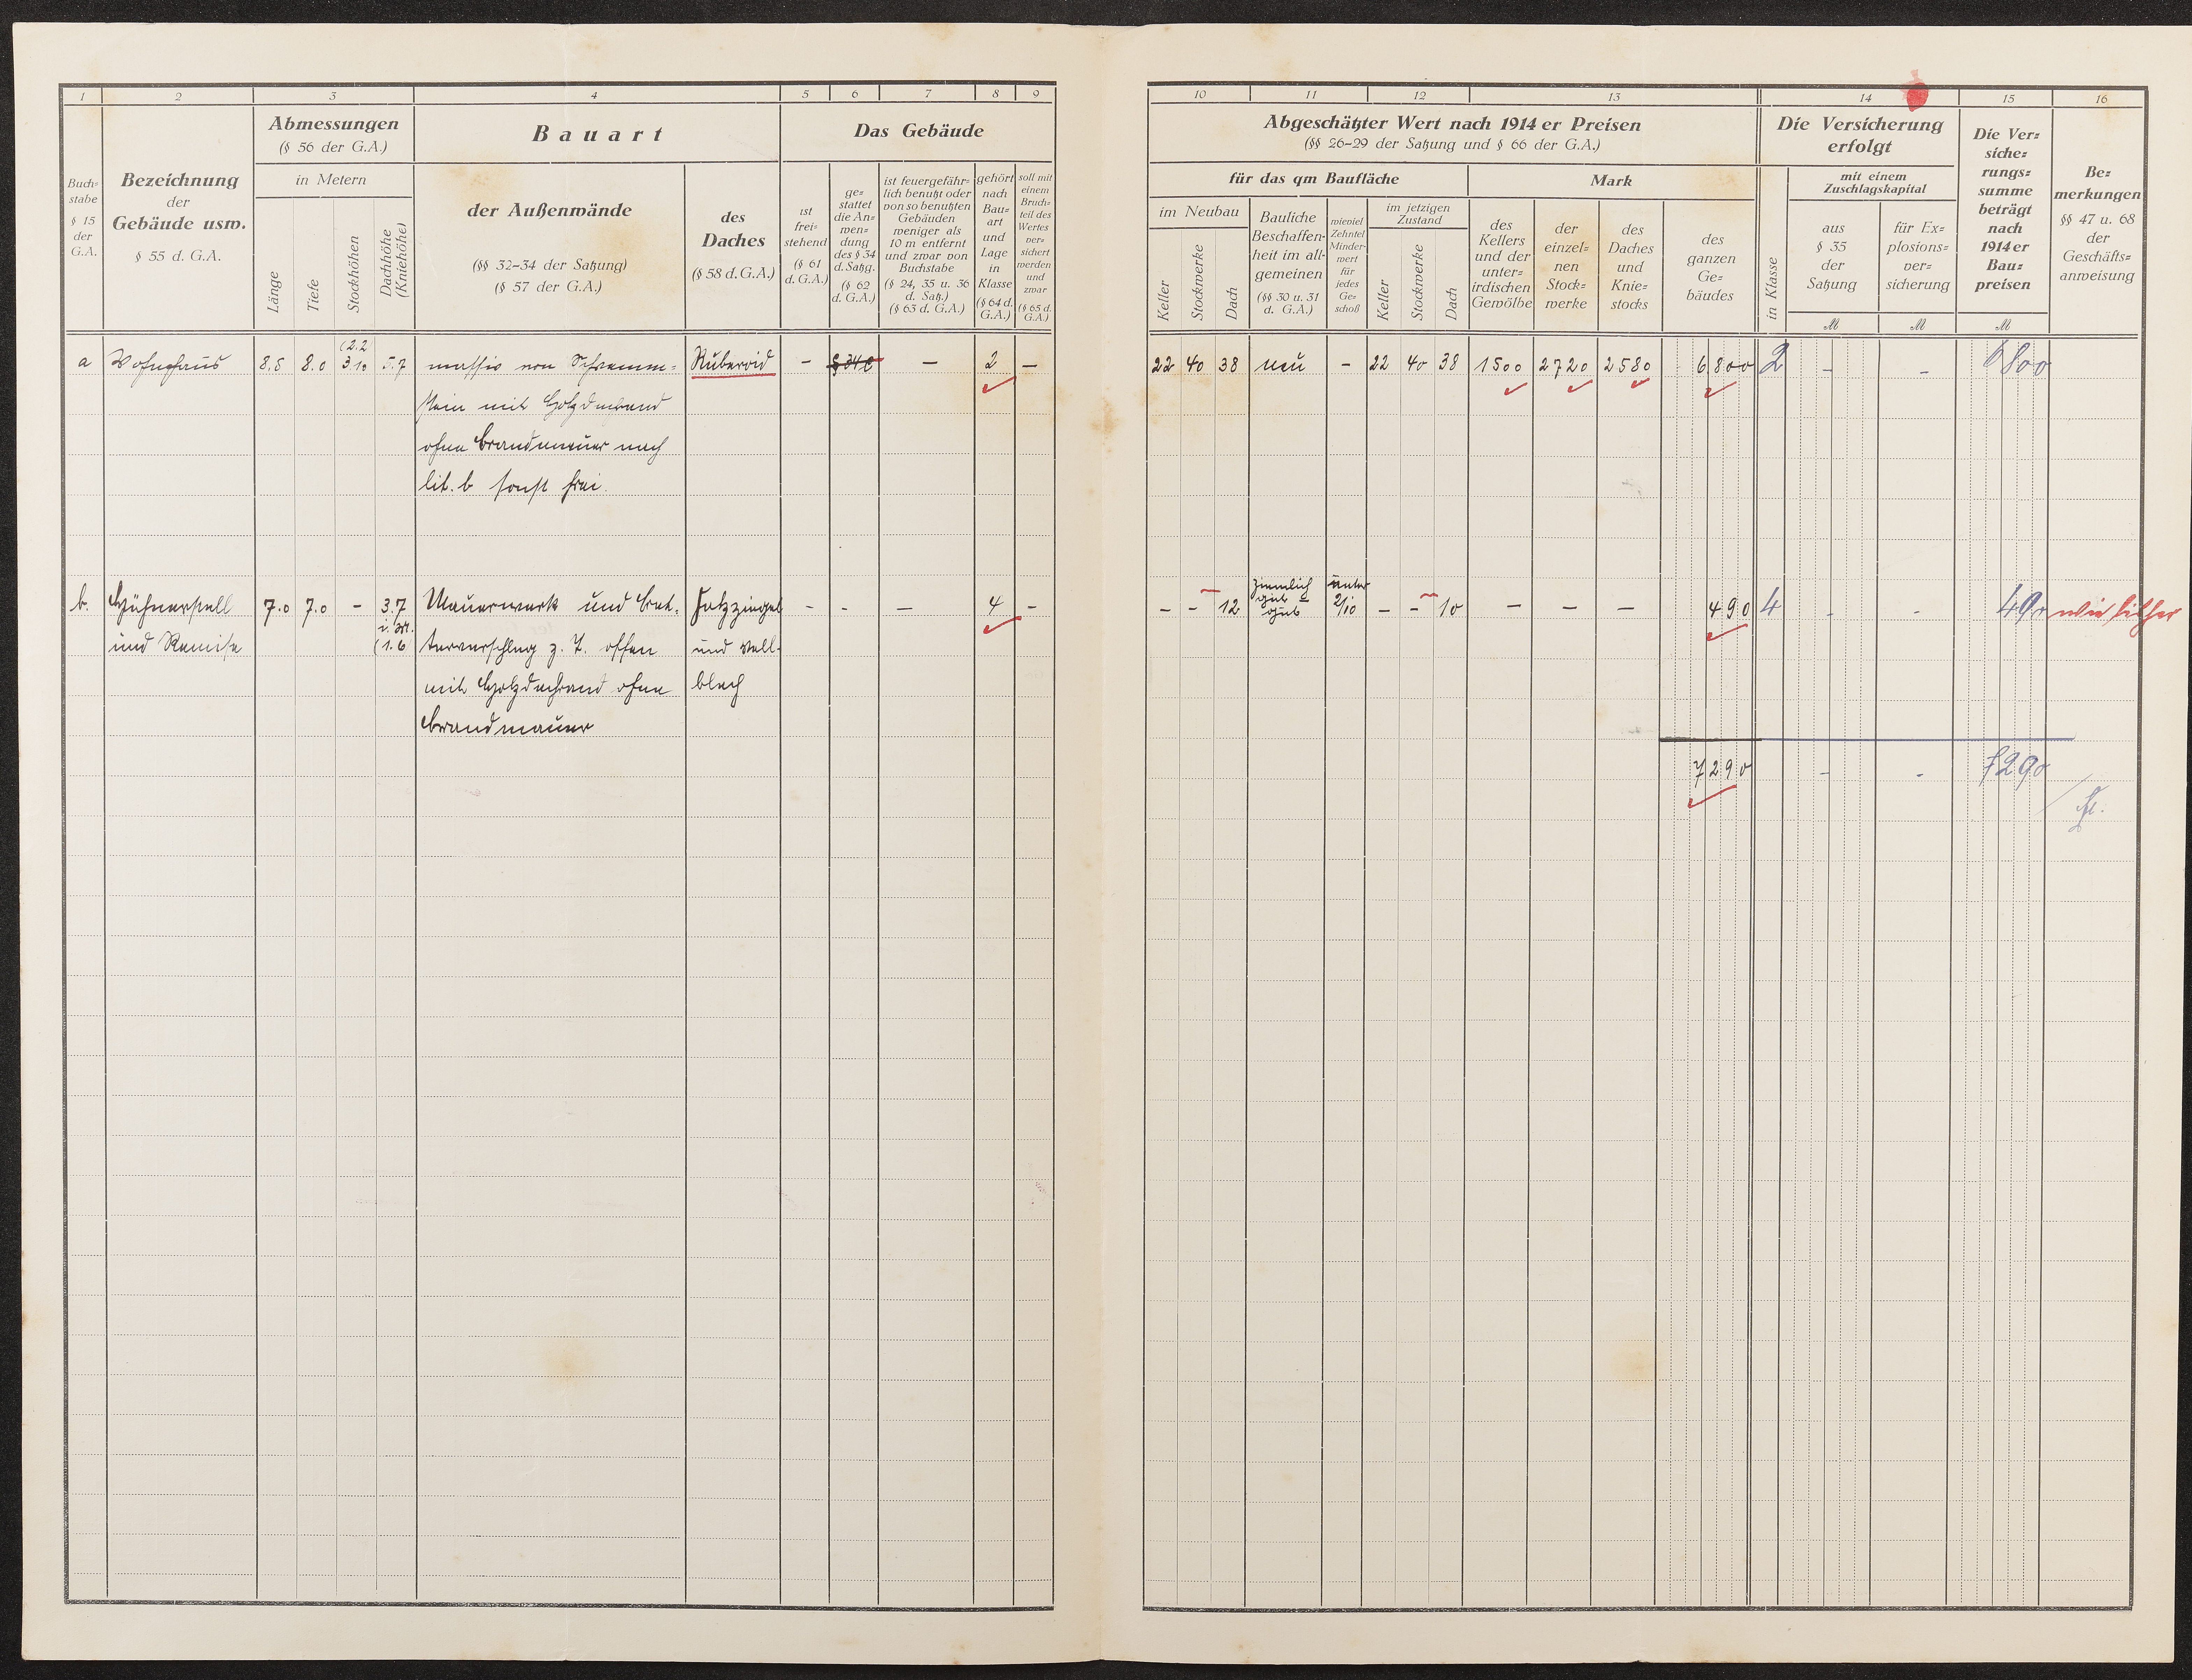 1 2 3 4 5 6 7 8 9
Abmessungen
(§ 56 der G.A.)
Bauart
Das Gebäude
Buch=
stabe
§ 15
der
G.A.
Bezeichnung
der
Gebäude usw.
§ 55 d. G.A.
in Metern
Länge
Tiefe
Stockhöhen
Dachhöhe
(Kniehöhe)
der Außenwände
(§§ 32–34 der Satzung)
(§ 57 der G.A.)
des
Daches
(§ 58 d. G.A.)
ist
frei=
stehend
(§ 61
d. G.A.)
ge=
stattet
die An=
wen=
dung
des § 34
d. Satzg.
(§ 62
d. G.A.)
ist feuergefähr=
lich benutzt oder
von so benutzten
Gebäuden
weniger als
10 m entfernt
und zwar von
Buchstabe
(§ 24, 35 u. 36
d. Satz.)
(§ 63 d. G.A.)
gehört
nach
Bau=
art
und
Lage
in
Klasse
(§ 64 d.
G.A.)
soll mit
einem
Bruch=
teil des
Wertes
ver=
sichert
werden
und
zwar
(§ 65 d.
G.A.)
a Wohnhaus 8.5 8.0 (2.2 3.10 5.7 massiv von Schwemm= Ruberoid – § 34c – 2 –
stein mit Holzdachrand
ohne Brandmauer nach
lit. b sonst frei.
b. Hühnerstall 7.0 7.0 – 3.7 Mauerwerk und Bret= Falzziegel – - – 4 –
und Remise i. M. (1.6 terverschlag z. T. offen und Well-
mit Holzdachrand ohne blech
Brandmauer
10 11 12 13 14 15 16
Abgeschätzter Wert nach 1914 er Preisen
(§§ 26–29 der Satzung und § 66 der G.A.)
für das qm Baufläche
Mark
im Neubau
Keller
Stockwerke
Dach
Bauliche
Beschaffen=
heit im all=
gemeinen
(§§ 30 u. 31
d. G.A.)
wieviel
Zehntel
Minder=
wert
für
jedes
Ge=
schoß
im jetzigen
Zustand
Keller
Stockwerke
Dach
des
Kellers
und der
unter=
irdischen
Gewölbe
der
einzel=
nen
Stock=
werke
des
Daches
und
Knie=
stocks
des
ganzen
Ge=
bäudes
Die Versicherung
erfolgt
in Klasse
mit einem
Zuschlagskapital
aus
§ 35
der
Satzung
für Ex=
plosions=
ver=
sicherung
M M M
Die Ver=
siche=
rungs=
summe
beträgt
nach
1914 er
Bau=
preisen
Be=
merkungen
§§ 47 u. 68
der
Geschäfts=
anweisung
22 40 38 neu – 22 40 38 1500 2720 2580 6800 2 – – 6800
– – 12 ziemlich gut – gut unter 2/10 – – 10 – – – 490 4 - - 490 wie bisher
7290 - - 7290